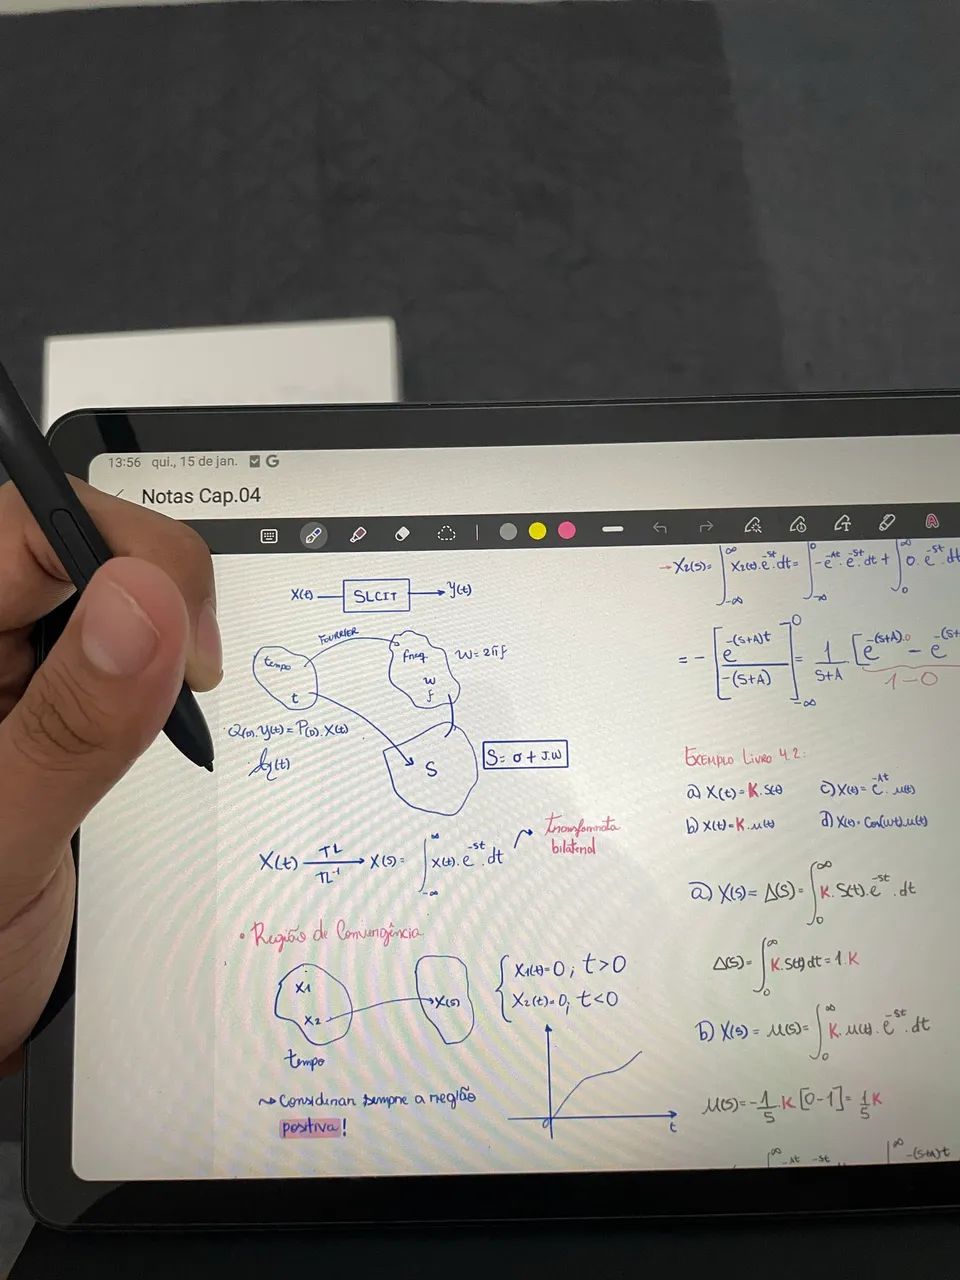 13:56 qui., 15 de jan.
Notas Cap.04
X(t) SLCIT Y(t)
FOURRIER
tempo
t
freq
w
f
W = 2πf
Q(D).Y(t) = P(D).X(t)
S
S = σ + J.W
X(t) TL TL⁻¹ X(s) = ∫-∞^∞ X(t).e^-st.dt
transformata
bilateral
• Região de Convergência
X1
X2
X(s)
tempo
X1(t)=0; t>0
X2(t)=0; t<0
0
t
~> Considerar sempre a região
positiva!
→ X2(s) = ∫-∞^∞ X2(t).e^-st.dt = ∫-∞^0 -e^-At.e^-st.dt + ∫0^∞ 0.e^-st.dt
= -[e^-(S+A)t / -(S+A)]-∞^0 = 1/(S+A) [e^-(S+A).0 - e^-(S+
1-0
EXEMPLO LIVRO 4.2:
a) X(t) = K.δ(t)
c) X(t) = e^-At.u(t)
b) X(t) = K.u(t)
d) X(t) = Cos(wt).u(t)
a) X(s) = Δ(s) = ∫0^∞ K.δ(t).e^-st.dt
Δ(s) = ∫0^∞ K.δ(t)dt = 1.K
b) X(s) = U(s) = ∫0^∞ K.u(t).e^-st.dt
U(s) = -1/s.K[0-1] = 1/s K
∞ -At -st ∞ -(s+A)t